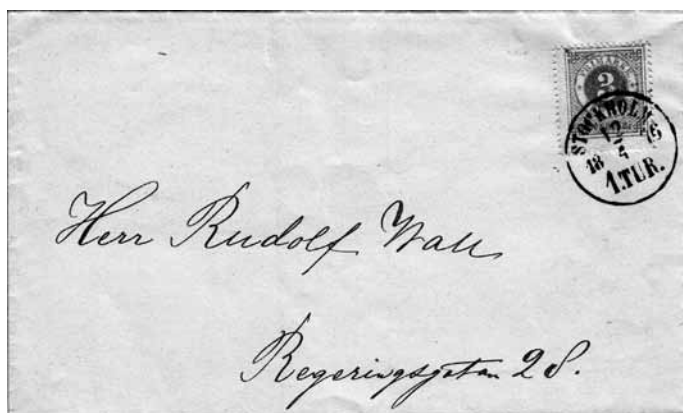 FRIMARKE
3
STOCKHOLM
12
18 4
1.TUR.
Herr Rudolf Wall
Regeringsgatan 28.